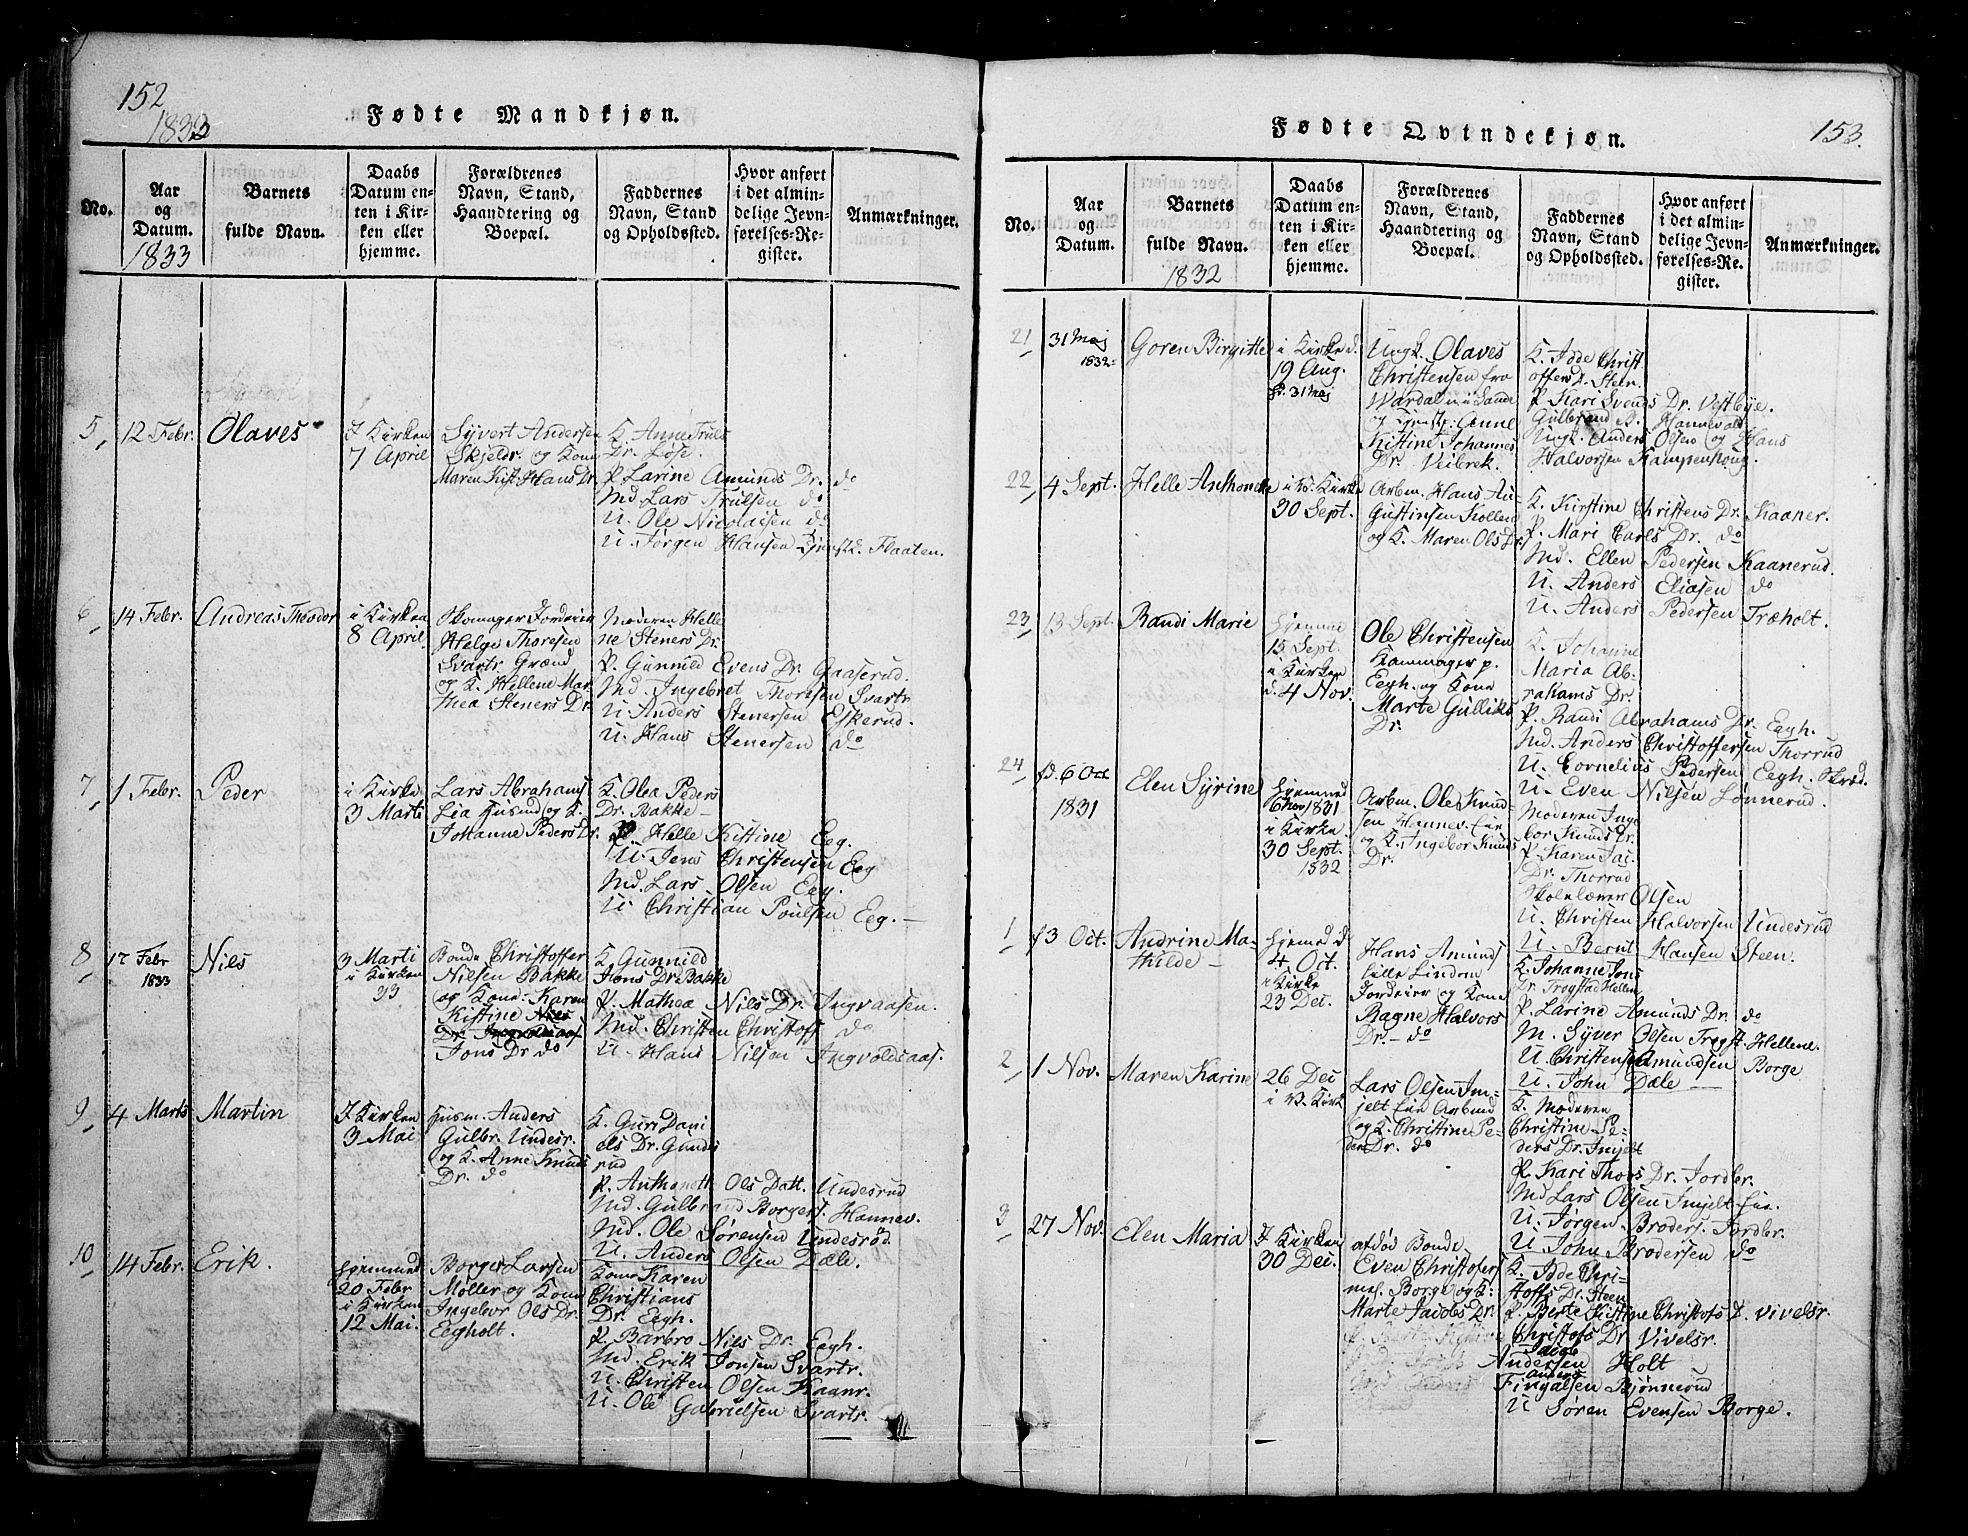 152
1833
Fødte Mandkjøn.
No.
Aar
og
Datum.
1833
Barnets
fulde Navn.
Daabs
Datum en-
ten i Kir-
ken eller
hjemme.
Forældrenes
Navn, Stand,
Haandtering og
Boepæl.
Faddernes
Navn, Stand
og Opholdssted.
Hvor anført
i det almin-
delige Jevn-
førelses-Re-
gister.
Anmærkninger.
5,
12 Febr.
Olaves
I Kirken
7 April
Syvert Andersen
Skjeldr. og Kone
Maren Kist. Hans Dr.
K. Anne Truls
Dr. Løse.
P. Larine Amunds Dr. do
Md. Lars Trulsen do
U. Ole Nicolaisen do
U. Jørgen Hansen Flaaten.
6,
14 Febr.
Andreas Theodor
i Kirken
8 April
Skomager Jordeier
Helge Thoresen
Svartr. Grænd
og K. Hellene Mar
thea Steners Dr.
Moderen Helle
ne Steners Dr.
P. Gunnild Evens Dr. Gaaserud.
Md. Ingebret Thoresen Svartr
U. Anders Stenersen Eskerud.
U. Hans Stenersen do
7,
1 Febr.
Peder
i Kirke
3 Marti
Lars Abrahams
Lea Husmd og K.
Johanne Peders Dr.
K. Olea Peders
Dr. Bakke
P. Helle Kistine Eeg.
U. Jens Christensen Eeg
Md. Lars Olsen Eeg.
U. Christian Poulsen Eeg.
8,
17 Febr
1833
Nils
3 Marti
i Kirken
33
Bonde Christoffer
Nilsen Bakke
og Kone Karen
Kistine Nils
Dr. Ingvoldsaas
Jons Dr do
K. Gunnild
Jons Dr. Bakke
P. Mathea Nils Dr. Ingvaasen.
Md. Christen Christoff do
U. Hans Nilsen Ingvoldsaas.
9,
4 Marts
Martin
I Kirken
3 Mai
Husm. Anders
Gulbr. Undesr.
og K. Anne Knuds
Dr. do
K. Guri Dani
els Dr. Gunds
rud
P. Anthonett Ols Datt. Undesrud
Md. Gulbrand Borgers. Hannev.
Md. Ole Sørensen Undesrød
U. Anders Olsen Dæle.
10,
14 Febr.
Erik.
Hjemmed
20 Febr
i Kirken
12 Mai.
Borger Larsen
Møller og Kone
Ingebor Ols Dr.
Eegholt.
Kone Karen
Christians
Dr. Eegh.
P. Barbro Nils Dr. Eegh.
Md. Erik Jonsen Svartr.
U. Christen Olsen Kaanr.
U. Ole Gabrielsen Svartr.
153.
Fødte Qvindekjøn.
No.
Aar
og
Datum.
Barnets
fulde Navn.
1832
Daabs
Datum en-
ten i Kir-
ken eller
hjemme.
Forældrenes
Navn, Stand,
Haandtering og
Boepæl.
Faddernes
Navn, Stand
og Opholdssted.
Hvor anført
i det almin-
delige Jevn-
førelses-Re-
gister.
Anmærkninger.
21,
31 Maj
1832
Goren Birgitte
i Kirke d.
19 Aug.
fd. 31 Maj
Ungk. Olaves
Christensen fra
Wardal i Sande
og Anne
Kistine Johannes
Dr. Veibrek.
K. Idde Christ
offers D. Steen.
P. Kari Svends Dr. Vestbye.
Gulbrand B. Hannevold
Ungk. Anders Olsen og Hans
Halvorsen Kampenhoug.
22,
4 Sept.
Helle Anthonette
i V. Kirke
30 Sept.
Arbm. Hans Au-
gustinsen Kollen
og K. Maren Ols Dr
K. Kirstine Christens Dr. Kaaner.
P. Mari Carls Dr. do
Md. Ellen Pedersen Kaanerud.
U. Anders Eliasen do
U. Anders Pedersen Træholt.
23,
13 Sept.
Randi Marie
Hjemme
15 Sept.
i Kirken
d. 4 Nov.
Ole Christensen
p.
Eegh. og Kone
Marte Gulliks
Dr.
K. Johanne
Maria Ab-
rahams Dr.
P. Randi Abrahams Dr. Eegh.
Md. Anders Christoffersen Thorrud
U. Cornelius Pedersen Eegh. Skræd.
U. Even Nilsen Lønnerud.
24,
fd. 6 Oct
1831
Elen Syrine
Hjemmed
6 Nov 1831
i Kirke
30 Sept.
1832
Arbm. Ole Knud
sen Hannev. Eie
og K. Ingebor Knuds
Dr.
Moderen Inge
bor Knuds Dr.
P. Karen Jac.
Dr. Thorrud
Skolelærer Olsen
U. Christen Halvorsen Undesrud
U. Bernt Hansen Steen.
1,
f 3 Oct.
Andrine Ma-
thilde
Hjemmed d
4 Oct.
i Kirke
23 Dec.
Hans Amunds
Lille Lindem
Jordeier og Kone
Ragne Halvors
Dr. do
K. Johanne Jons
Dr. Trogstad Hellen
P. Larine Amunds Dr. do
M. Syver Olsen Trogst. Hellene.
U. Christen Amundsen Borge
U. John Dæle
2,
1 Nov.
Maren Karine
26 Dec
i V. Kirk
Lars Olsen Im-
jelt Eie Arbmd
og K. Christine Pe-
ders Dr. do
K. Moderen
Christine Pe-
ders Dr. Imjelt
P. Kari Thors Dr. Jordbr.
Md Lars Olsen Imjelt Eie.
U. Jørgen Broders. Jordbr.
U. John Brodersen do
3,
27 Nov.
Elen Maria
I Kirken
30 Dec.
afdød Bonde
Even Christofers
Borge og K:
Marte Jacobs Dr.
K. Idde Chri-
stoffs Dr. Steen
P. Berte Kistine Christofs D. Vivelsr.
Christofs Dr. Vivelsr.
Andersen Holt
Anders
Fingalsen Bjønnerud
U Søren Evensen Borge.